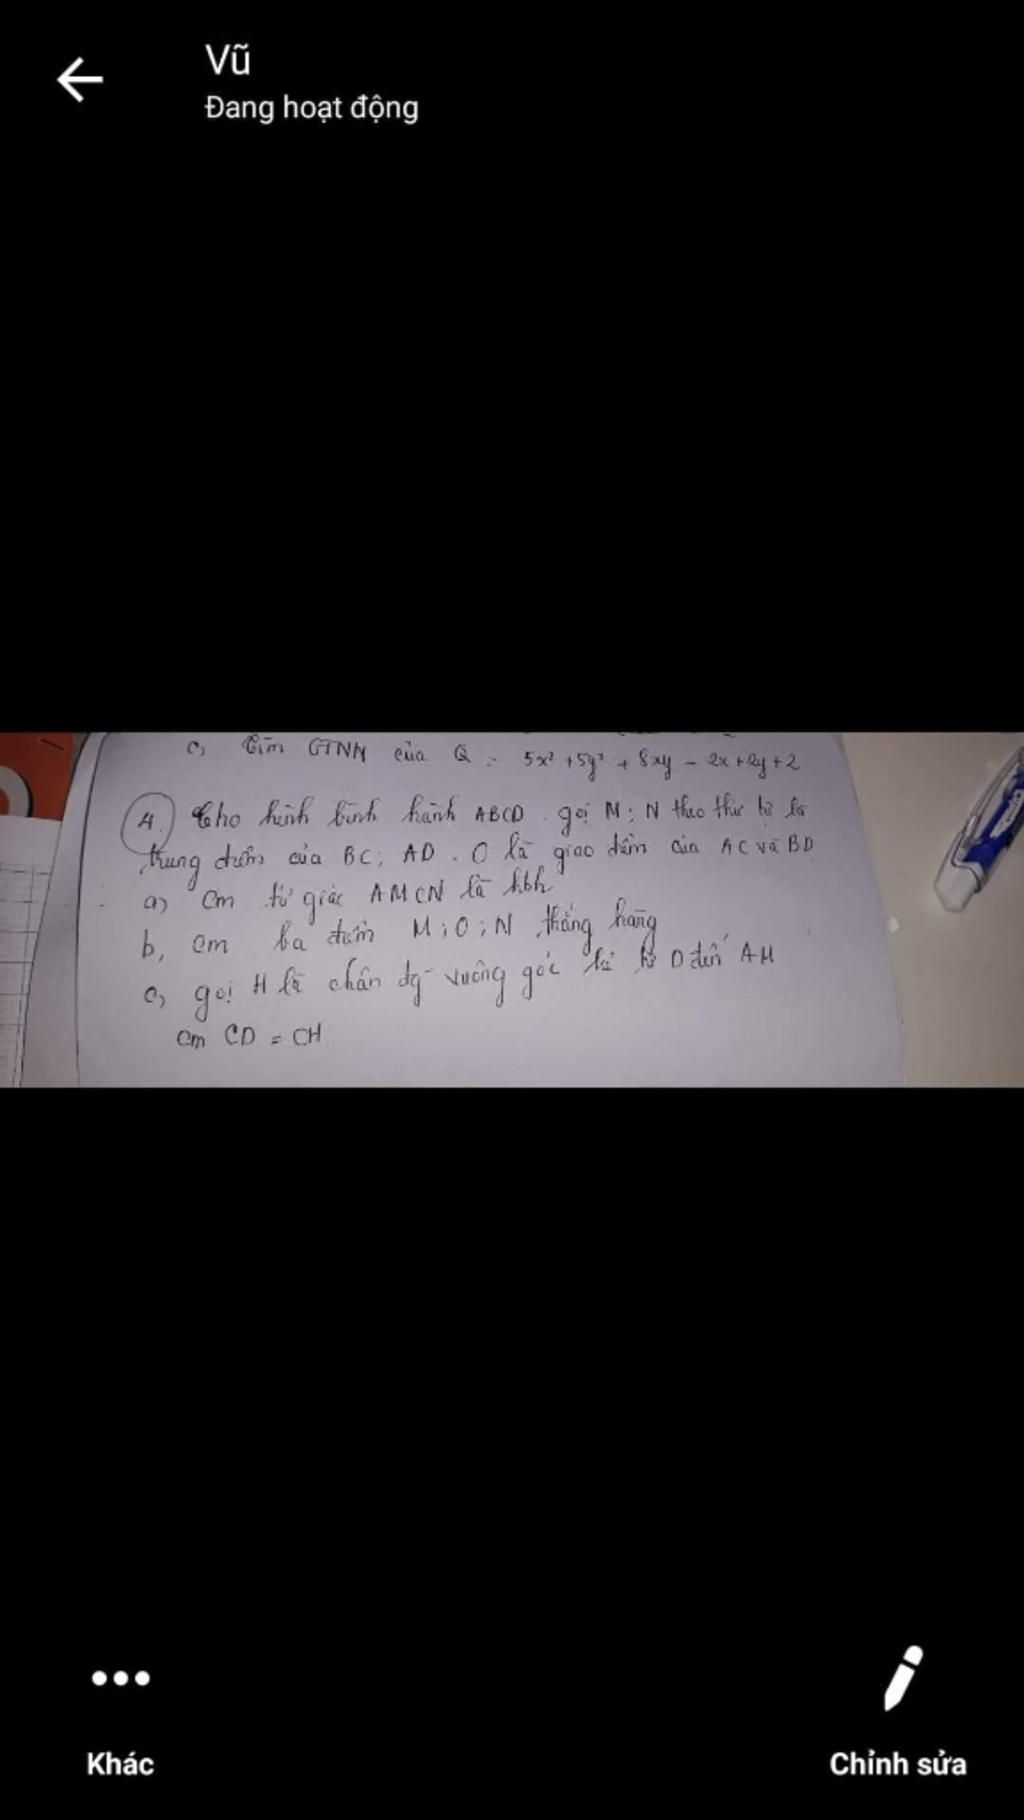 Vũ
Đang hoạt động
c, Tìm GTNN của Q = 5x² + 5y² + 8xy - 2x + 2y + 2
4. Cho hình bình hành ABCD. gọi M; N theo thứ tự là
trung điểm của BC; AD. O là giao điểm của AC và BD
a, Cm tứ giác AMCN là hbh
b, Cm ba điểm M; O; N thẳng hàng
c, gọi H là chân đg vuông góc kẻ từ D đến AM
Cm CD = CH
Khác
Chỉnh sửa